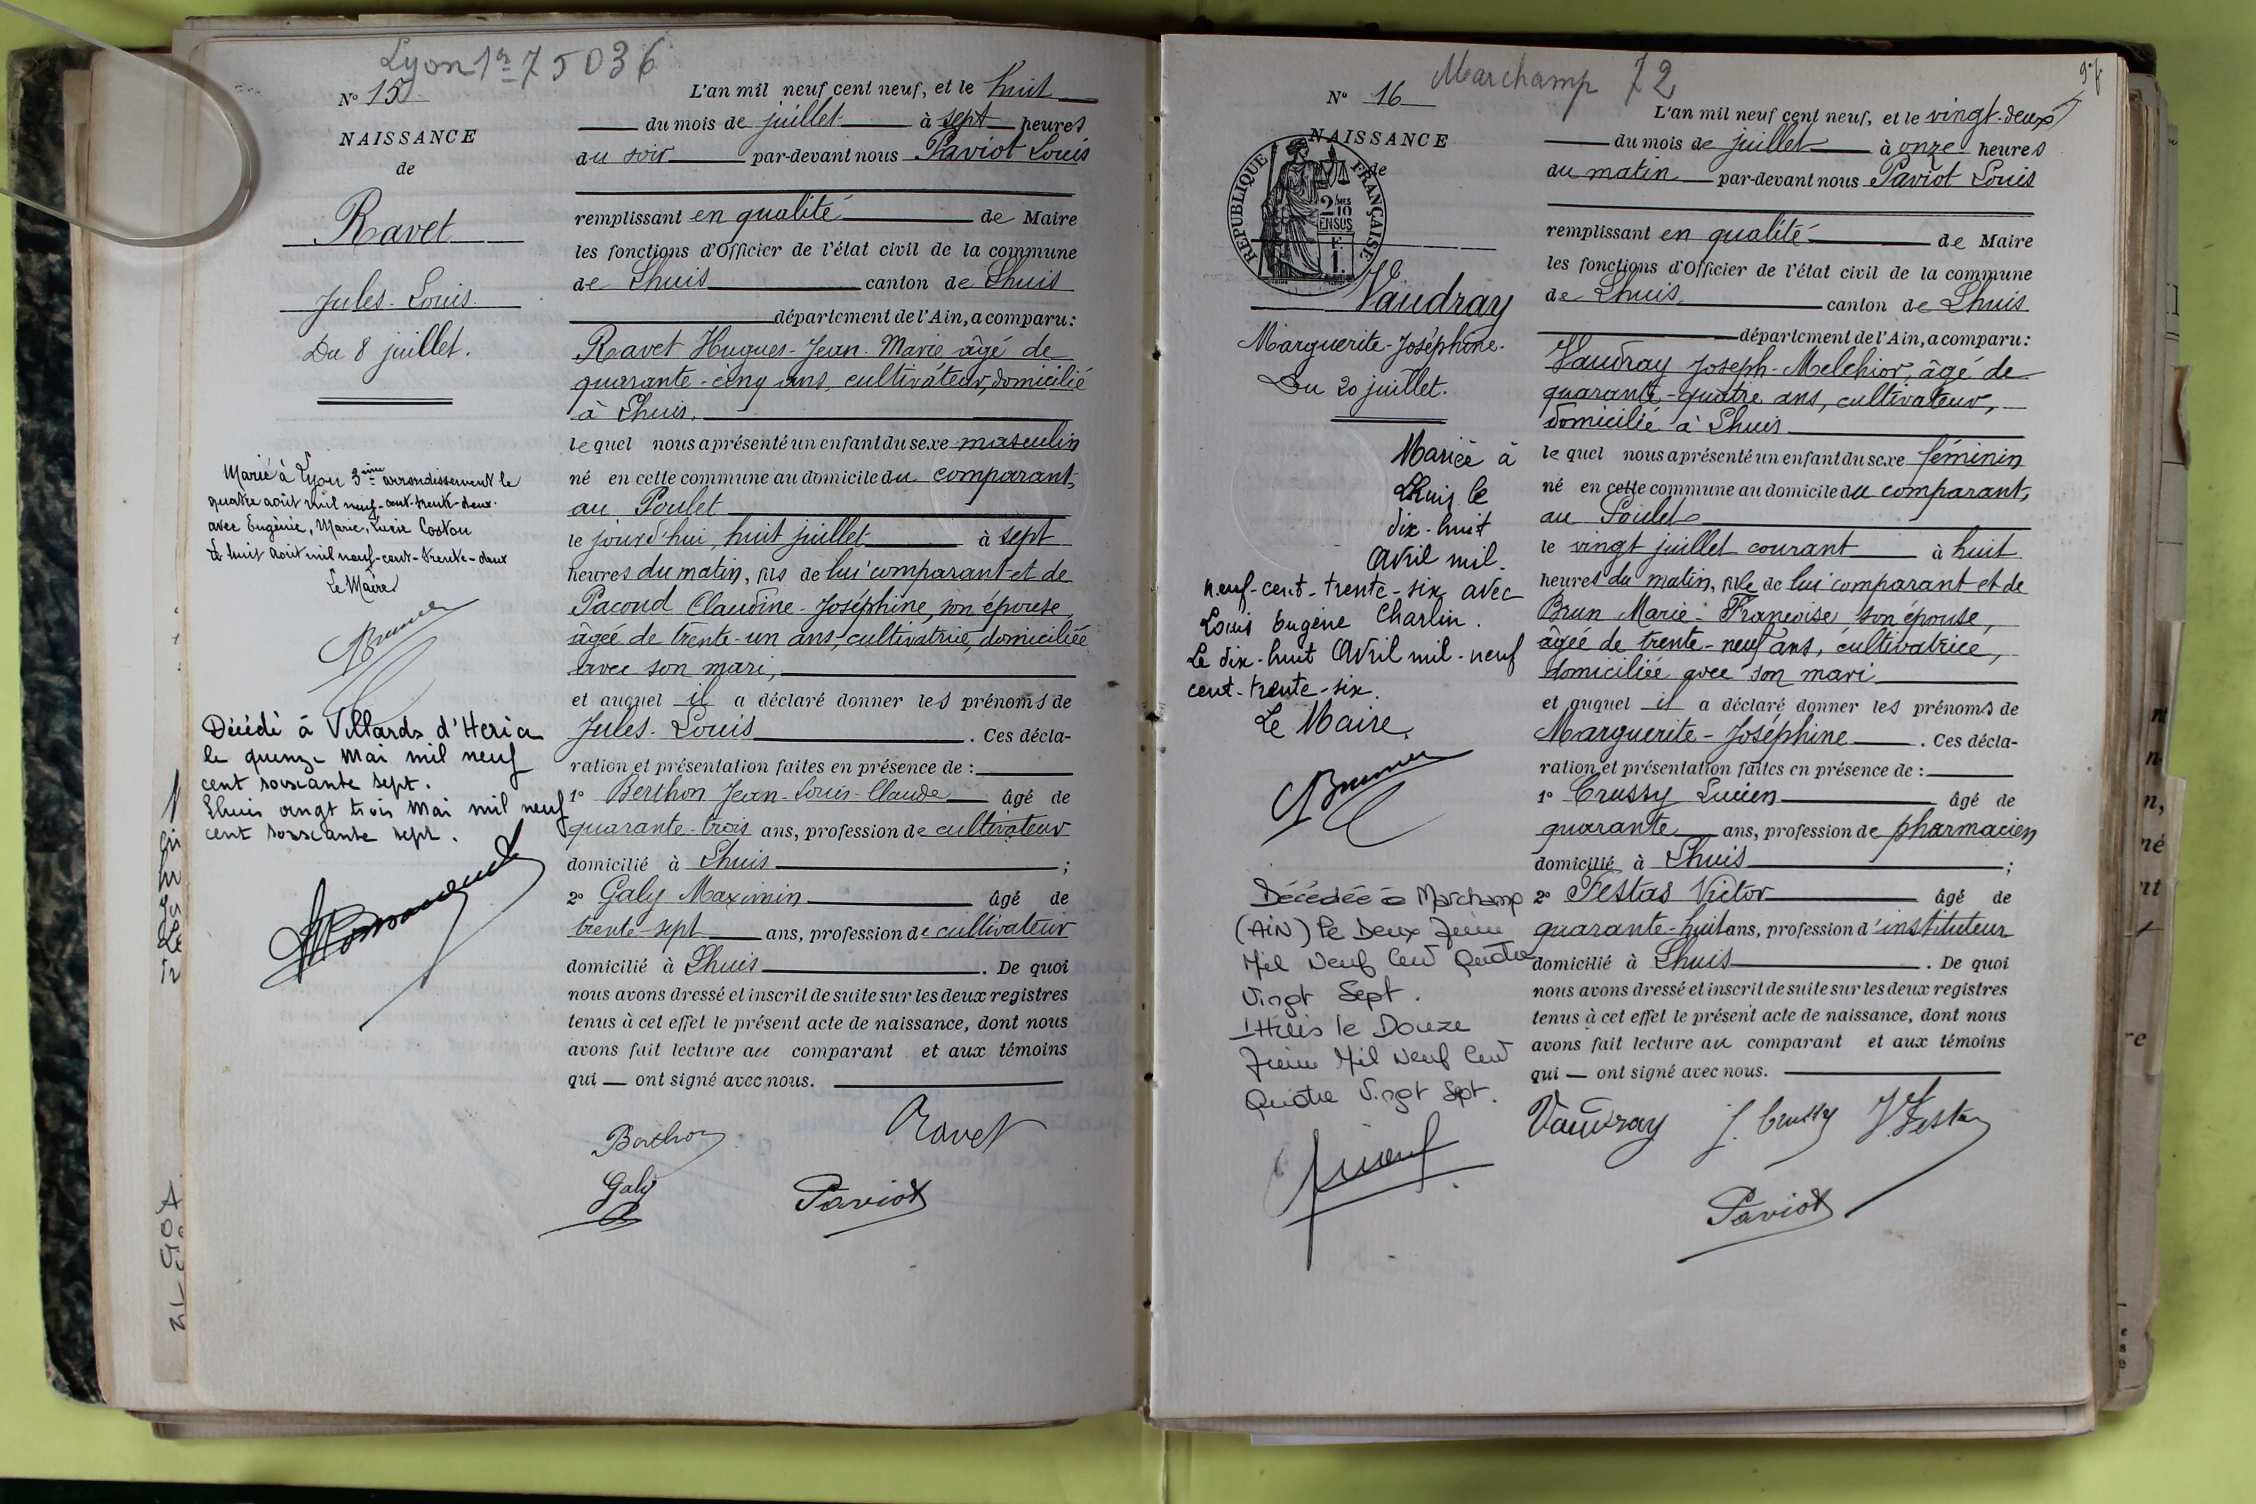 Lyon 1er 75036
N° 15
NAISSANCE
de
Ravet
Jules-Louis
Du 8 juillet.
Marié à Lyon 3ème arrondissement le
quatre août mil neuf-cent-trente-deux
avec Eugénie, Marie, Lucie
Le huit Août mil neuf-cent-trente-deux
Le Maire
Décédé à Villards d'Heria
le quinze Mai mil neuf
cent soixante sept.
Lhuis vingt trois Mai mil neuf
cent soixante sept.
L'an mil neuf cent neuf, et le huit
du mois de juillet à sept heures
du soir par-devant nous Paviot Louis
remplissant en qualité de Maire
les fonctions d'Officier de l'état civil de la commune
de Lhuis canton de Lhuis
département de l'Ain, a comparu:
Ravet Hugues-Jean-Marie âgé de
quarante-cinq ans, cultivateur, domicilié
à Lhuis.
lequel nous a présenté un enfant du sexe masculin
né en cette commune au domicile du comparant,
au Poulet
le jourd'hui, huit juillet à sept
heures du matin, fils de lui comparant et de
Pacoud Claudine-Joséphine, son épouse
âgée de trente-un ans, cultivatrice, domiciliée
avec son mari,
et auquel il a déclaré donner les prénoms de
Jules-Louis . Ces décla-
ration et présentation faites en présence de :
1° Berthon Jean-Louis-Claude âgé de
quarante-trois ans, profession de cultivateur
domicilié à Lhuis ;
2° Galy Maximin âgé de
trente-sept ans, profession de cultivateur
domicilié à Lhuis . De quoi
nous avons dressé et inscrit de suite sur les deux registres
tenus à cet effet le présent acte de naissance, dont nous
avons fait lecture au comparant et aux témoins
qui — ont signé avec nous.
Berthon Ravet
Galy Paviot
Marchamp 72
N° 16
NAISSANCE
de
REPUBLIQUE FRANÇAISE
2/10
EN SUS
1 F.
Vaudray
Marguerite-Joséphine.
Du 20 juillet.
Mariée à
Lhuis le
dix-huit
Avril mil.
neuf-cent-trente-six avec
Louis Eugène Charlin.
Le dix-huit Avril mil-neuf
cent-trente-six.
Le Maire,
Décédée à Marchamp
(AIN) le Deux Juin
Mil Neuf Cent Quatre
Vingt Sept.
Lhuis le Douze
Juin Mil Neuf Cent
Quatre Vingt Sept.
L'an mil neuf cent neuf, et le vingt-deux
du mois de juillet à onze heures
du matin par-devant nous Paviot Louis
remplissant en qualité de Maire
les fonctions d'Officier de l'état civil de la commune
de Lhuis canton de Lhuis
département de l'Ain, a comparu:
Vaudray Joseph-Melchior, âgé de
quarante-quatre ans, cultivateur,
domicilié à Lhuis
lequel nous a présenté un enfant du sexe féminin
né en cette commune au domicile du comparant,
au Poulet
le vingt juillet courant à huit
heures du matin, fille de lui comparant et de
Brun Marie-Françoise son épouse,
âgée de trente-neuf ans, cultivatrice,
domiciliée avec son mari
et auquel il a déclaré donner les prénoms de
Marguerite-Joséphine . Ces décla-
ration et présentation faites en présence de :
1° Crussy Lucien âgé de
quarante ans, profession de pharmacien
domicilié à Lhuis ;
2° Festas Victor âgé de
quarante-huit ans, profession d'instituteur
domicilié à Lhuis . De quoi
nous avons dressé et inscrit de suite sur les deux registres
tenus à cet effet le présent acte de naissance, dont nous
avons fait lecture au comparant et aux témoins
qui — ont signé avec nous.
Vaudray J. Crussy V. Festas
Paviot